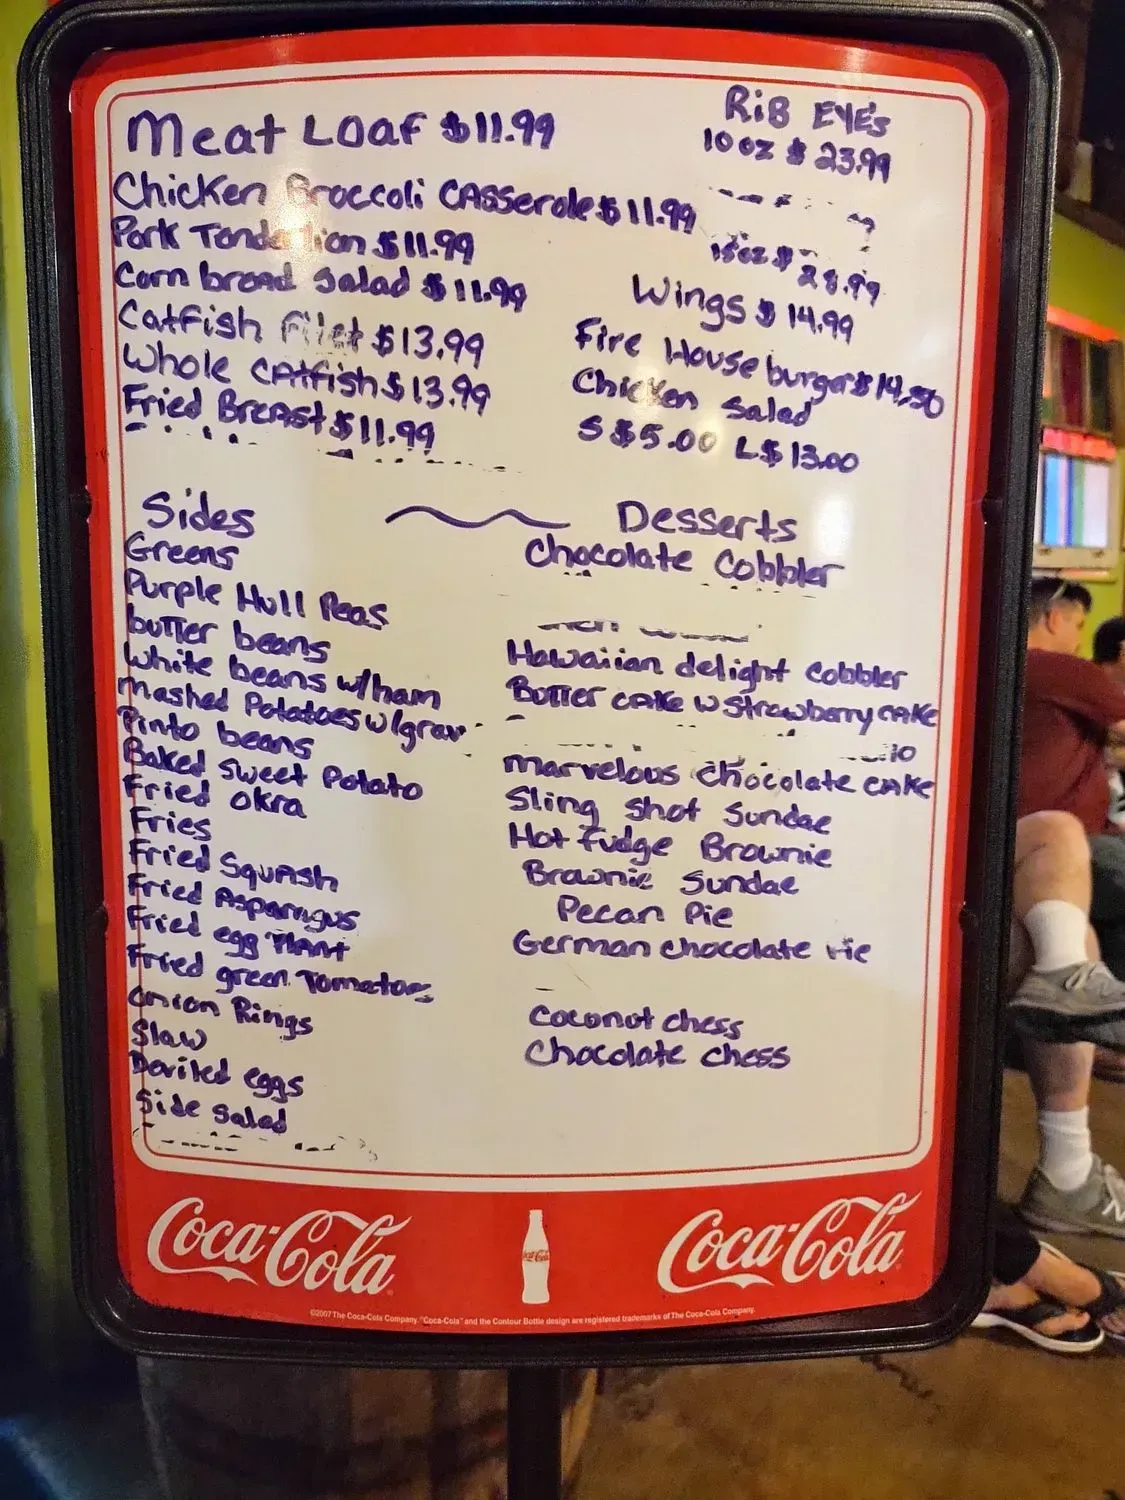 Meat Loaf $11.99
Chicken Broccoli Casserole $11.99
Pork Tenderlion $11.99
Corn bread salad $11.99
Catfish Filet $13.99
Whole Catfish $13.99
Fried Breast $11.99
RiB EYE's
10 oz $23.99
$28.99
Wings $14.99
Fire House burger $14.50
Chicken salad
S $5.00 L $13.00
Sides
Greens
Purple Hull Peas
butter beans
White beans w/ham
Mashed Potatoes w/grav
Pinto beans
Baked Sweet Potato
Fried okra
Fries
Fried Squash
Fried Asparagus
Fried egg Plant
Fried green Tomatoes
Onion Rings
Slaw
Deviled eggs
Side Salad
Desserts
Chocolate Cobbler
Hawaiian delight cobbler
Butter cake w Strawberry cake
Marvelous Chocolate cake
Sling Shot Sundae
Hot fudge Brownie
Brownie Sundae
Pecan Pie
German chocolate Pie
Coconut chess
Chocolate chess
Coca-Cola
Coca-Cola
Coca-Cola
©2007 The Coca-Cola Company. "Coca-Cola" and the Contour Bottle design are registered trademarks of The Coca-Cola Company.